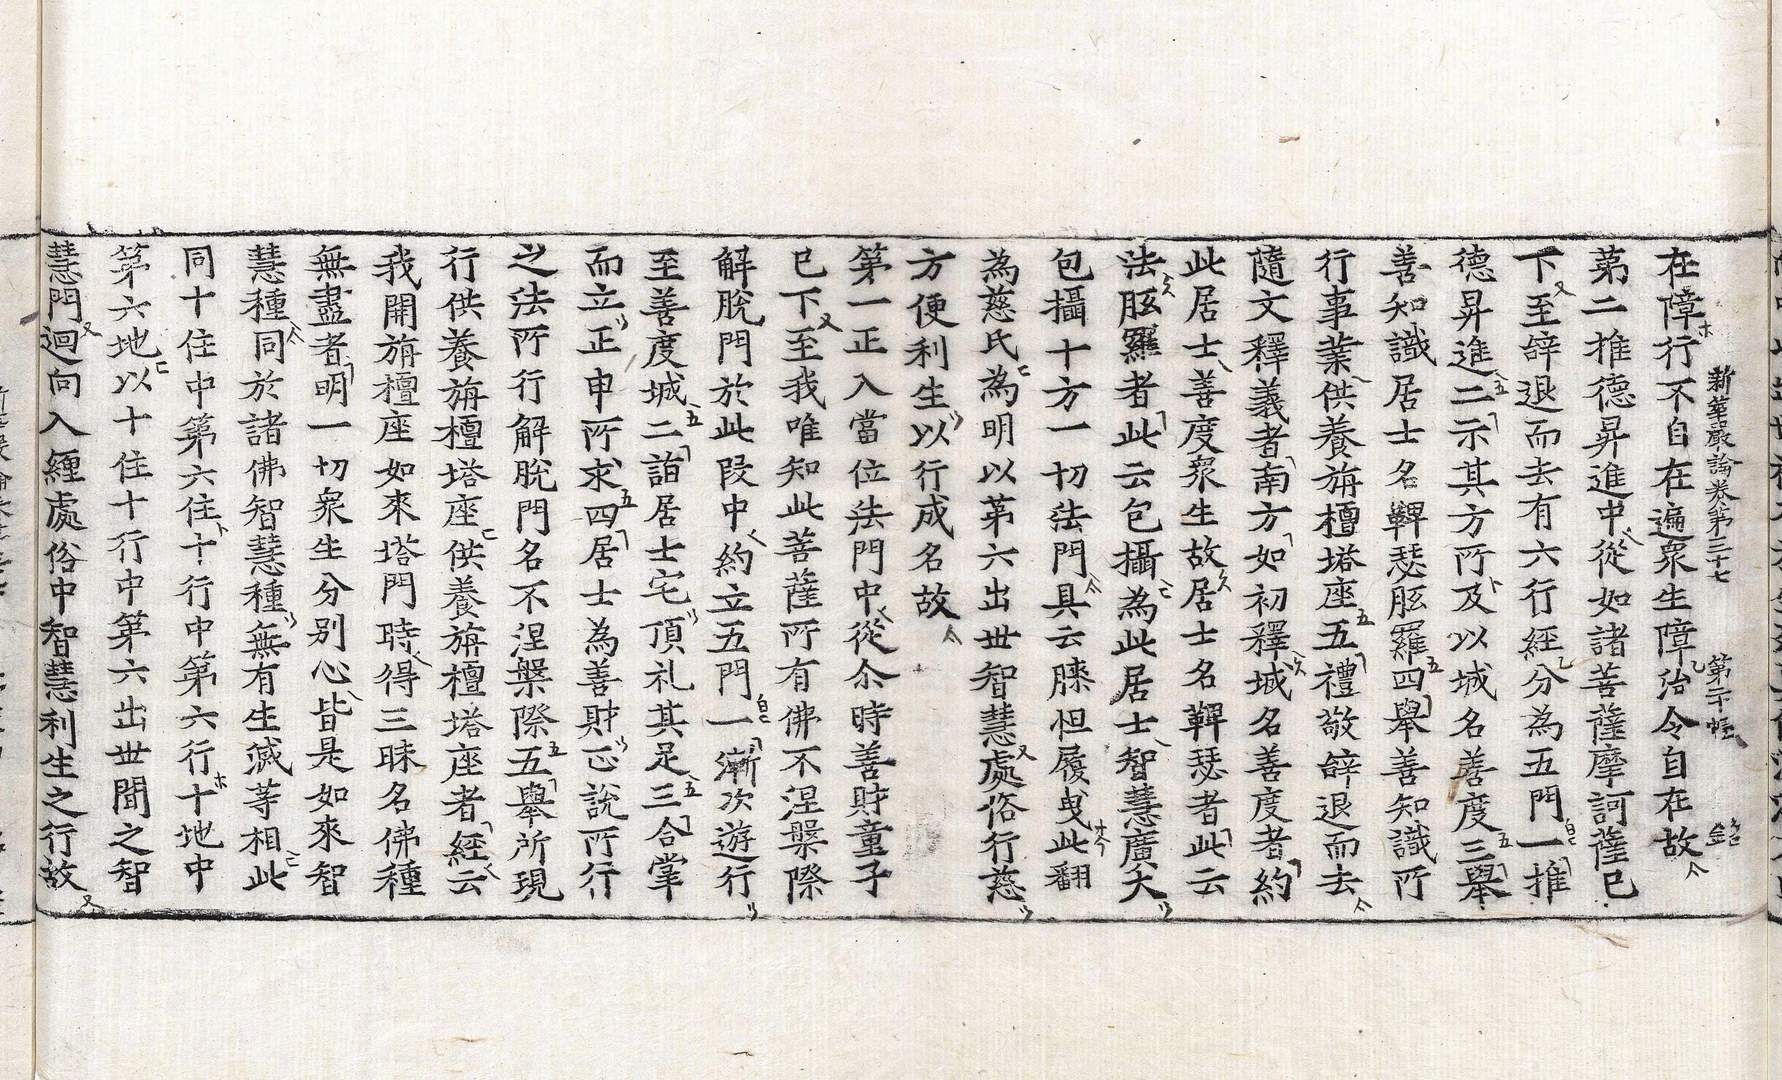 在障行不自在遍衆生障治令自在故
新華嚴論卷第三十七
第二推德昇進中從如諸菩薩摩訶薩已
下至辞退而去有六行經分為五門一推
德昇進二示其方所及以城名善度三舉
善知識居士名鞞瑟胝羅四舉善知識所
行事業供養旃檀塔座五禮敬辞退而去
隨文釋義者南方如初釋城名善度者約
此居士善度衆生故居士名鞞瑟者此云
法胝羅者此云包攝為此居士智慧廣大
包攝十方一切法門具云膝怛履曳此翻
為慈氏為明以第六出世智慧處俗行慈
方便利生以行成名故
第一正入當位法門中從尒時善財童子
已下至我唯知此菩薩所有佛不涅槃際
解脫門於此段中約立五門一漸次遊行
至善度城二詣居士宅頂礼其足三合掌
而立正申所求四居士為善財正說所行
之法所行解脫門名不涅槃際五舉所現
行供養旃檀塔座供養旃檀塔座者經云
我開旃檀座如來塔門時得三昧名佛種
無盡者明一切衆生分別心皆是如來智
慧種同於諸佛智慧種無有生滅等相此
同十住中第六住十行中第六行十地中
第六地以十住十行中第六出世間之智
慧門迴向入纏處俗中智慧利生之行故